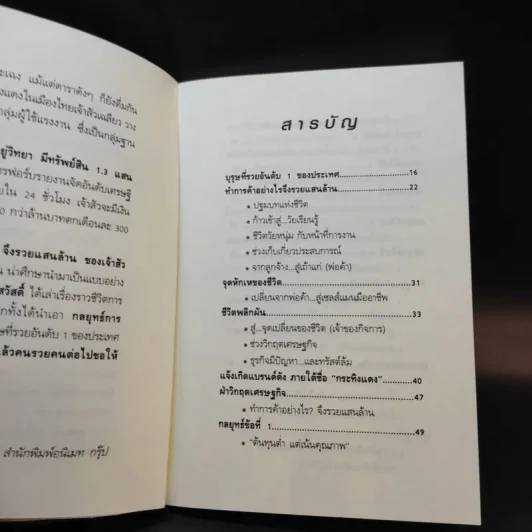 ะเฉง แม้แต่ดาราดังๆ ก็ยังดื่มกัน
งแดงในเมืองไทยเจ้าสัวเฉลียว วาง
ลุ่มผู้ใช้แรงงาน ซึ่งเป็นกลุ่มฐาน
ยู่วิทยา มีทรัพย์สิน 1.3 แสน
รฟอร์บรายงานจัดอันดับเศรษฐี
ายใน 24 ชั่วโมง เจ้าสัวจะมีเงิน
0 กว่าล้านบาทตกเดือนละ 300
จึงรวยแสนล้าน ของเจ้าสัว
น น่าศึกษานำมาเป็นแบบอย่าง
วัสดิ์ ได้เล่าเรื่องราวชีวิตการ
กทั้งได้นำเอา กลยุทธ์การ
ษที่รวยอันดับ 1 ของประเทศ
แล้วคนรวยคนต่อไปขอให้
สำนักพิมพ์อนิเมท กรุ๊ป
สารบัญ
บุรุษที่รวยอันดับ 1 ของประเทศ..................16
ทำการค้าอย่างไรจึงรวยแสนล้าน..................22
• ปฐมบทแห่งชีวิต
• ก้าวเข้าสู่...วัยเรียนรู้
• ชีวิตวัยหนุ่ม กับหน้าที่การงาน
• ช่วงเก็บเกี่ยวประสบการณ์
• จากลูกจ้าง...สู่เถ้าแก่ (พ่อค้า)
จุดหักเหของชีวิต..................31
• เปลี่ยนจากพ่อค้า...สู่เซลส์แมนมืออาชีพ
ชีวิตพลิกผัน..................33
• สู่...จุดเปลี่ยนของชีวิต (เจ้าของกิจการ)
• ช่วงวิกฤตเศรษฐกิจ
• ธุรกิจมีปัญหา...และทรัสต์ล้ม
แจ้งเกิดแบรนด์ดัง ภายใต้ชื่อ "กระทิงแดง"..........40
ฝ่าวิกฤตเศรษฐกิจ..................47
• ทำการค้าอย่างไร? จึงรวยแสนล้าน
กลยุทธ์ข้อที่ 1..................49
• "ต้นทุนต่ำ แต่เน้นคุณภาพ"